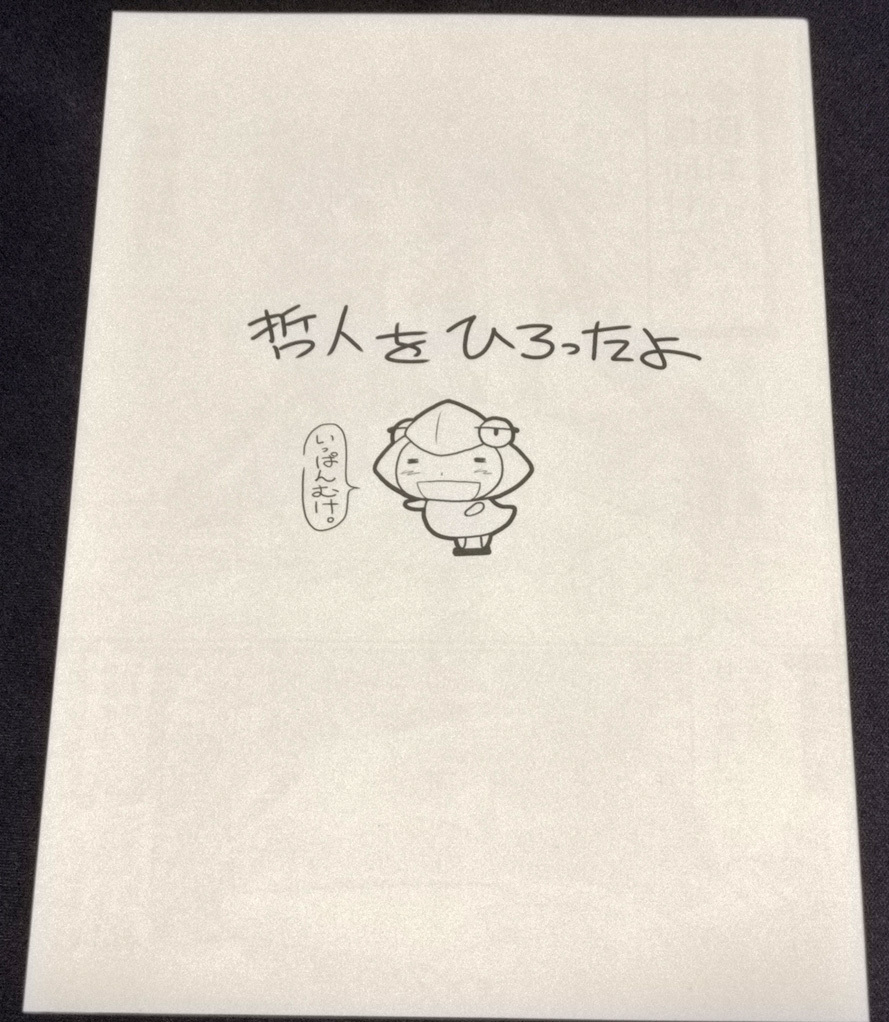 哲人をひろったよ
いっぱんむけ。